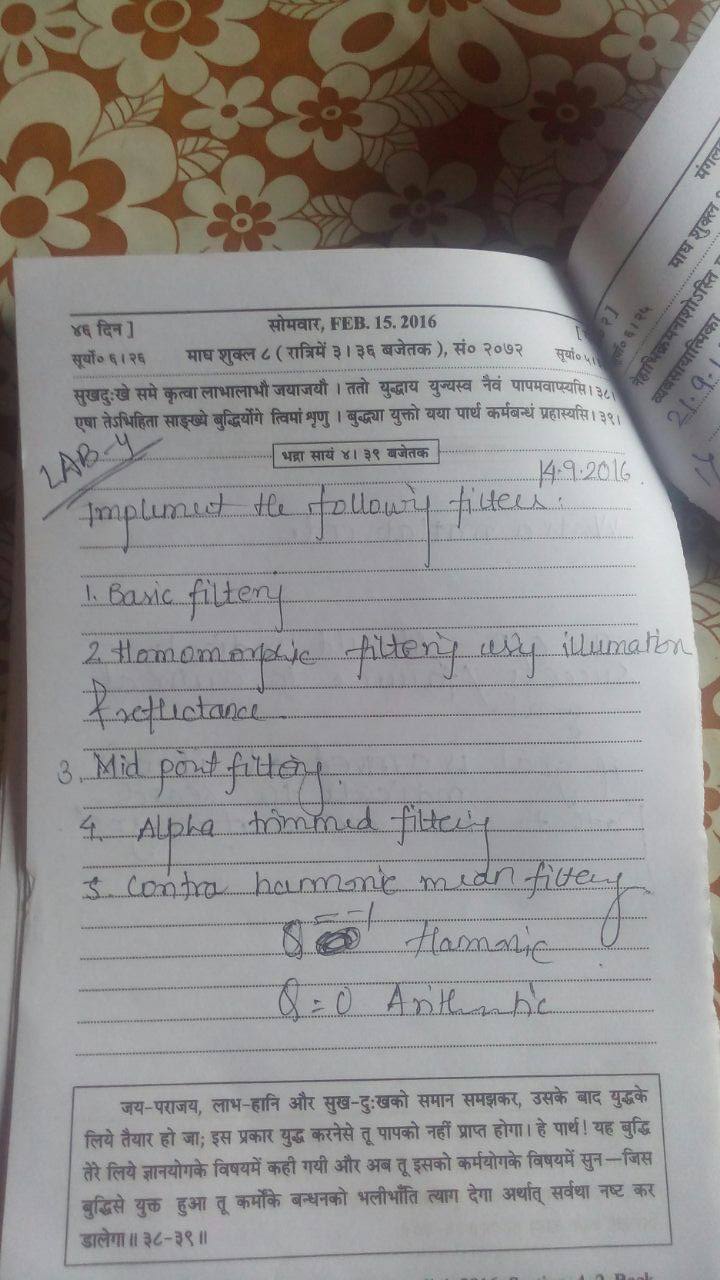 ४६ दिन ]
सोमवार, FEB. 15. 2016
सूर्यो० ६।२६ माघ शुक्ल ८ ( रात्रिमें ३।३६ बजेतक ), सं० २०७२ सूर्या० ५।
सुखदुःखे समे कृत्वा लाभालाभौ जयाजयौ । ततो युद्धाय युज्यस्व नैवं पापमवाप्स्यसि । ३८।
एषा तेऽभिहिता साङ्ख्ये बुद्धिर्योगे त्विमां शृणु । बुद्ध्या युक्तो यया पार्थ कर्मबन्धं प्रहास्यसि । ३९।
भद्रा सायं ४।३९ बजेतक
LAB-4
14.9.2016
Implement the following filters.
1. Basic filtering
2. Homomorphic filtering using illumation
& reflectance.
3. Mid point filtering.
4. Alpha trimmed filtering
5. Contra harmonic mean filtering
Q = -1 Harmonic
Q = 0 Arithmetic
जय-पराजय, लाभ-हानि और सुख-दुःखको समान समझकर, उसके बाद युद्धके
लिये तैयार हो जा; इस प्रकार युद्ध करनेसे तू पापको नहीं प्राप्त होगा। हे पार्थ! यह बुद्धि
तेरे लिये ज्ञानयोगके विषयमें कही गयी और अब तू इसको कर्मयोगके विषयमें सुन—जिस
बुद्धिसे युक्त हुआ तू कर्मोंके बन्धनको भलीभाँति त्याग देगा अर्थात् सर्वथा नष्ट कर
डालेगा॥ ३८-३९॥
मंगल
माघ शुक्ल
सूर्यो० ६।२५
नेहाभिक्रमनाशोऽस्ति
व्यवसायात्मिका
21.9.1